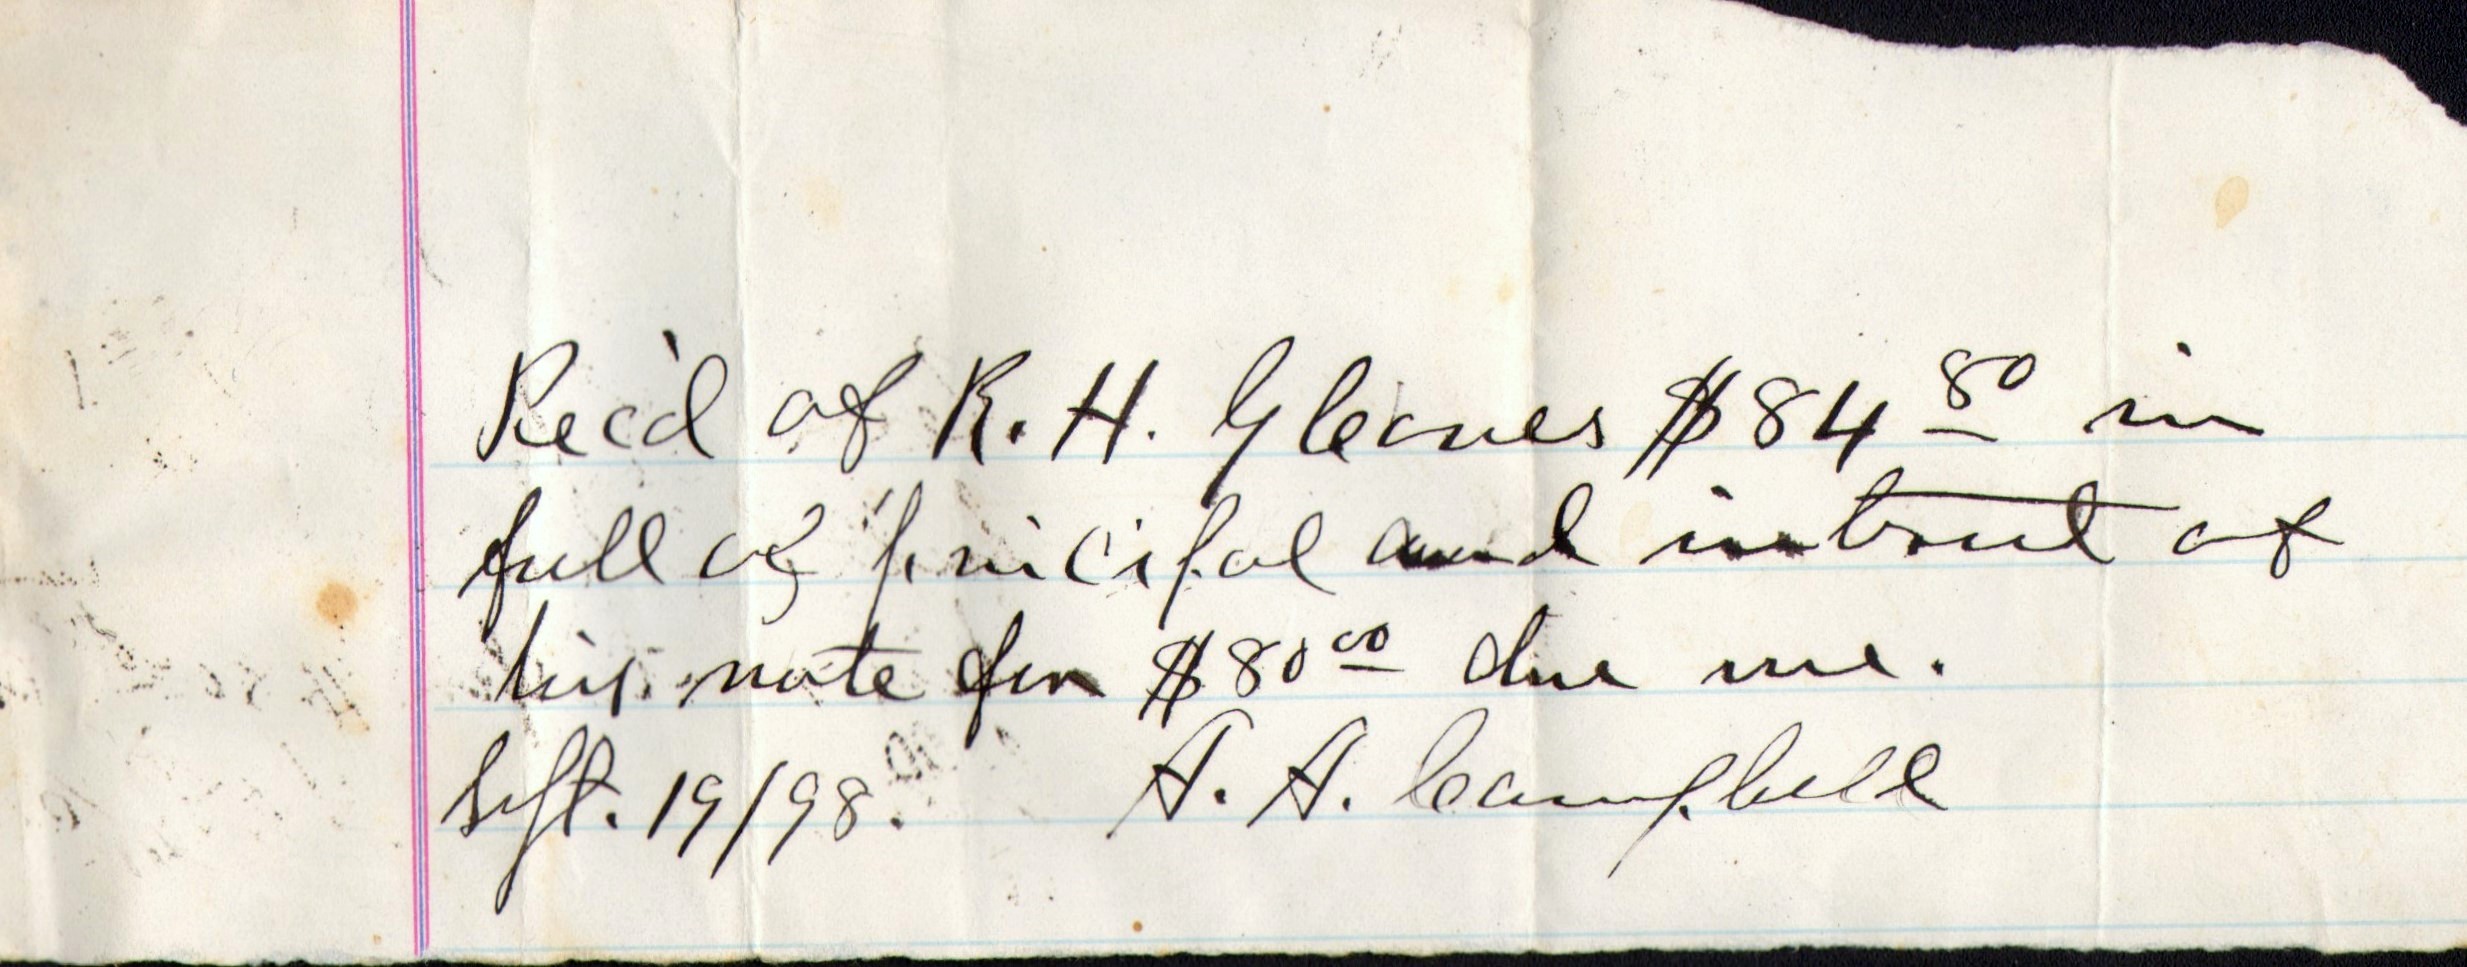 Rec'd of R. H. Gleaves $84 80 in
full of principal and interest of
his note for $80 00 due me.
Sept. 19/98. A. A. Campbell